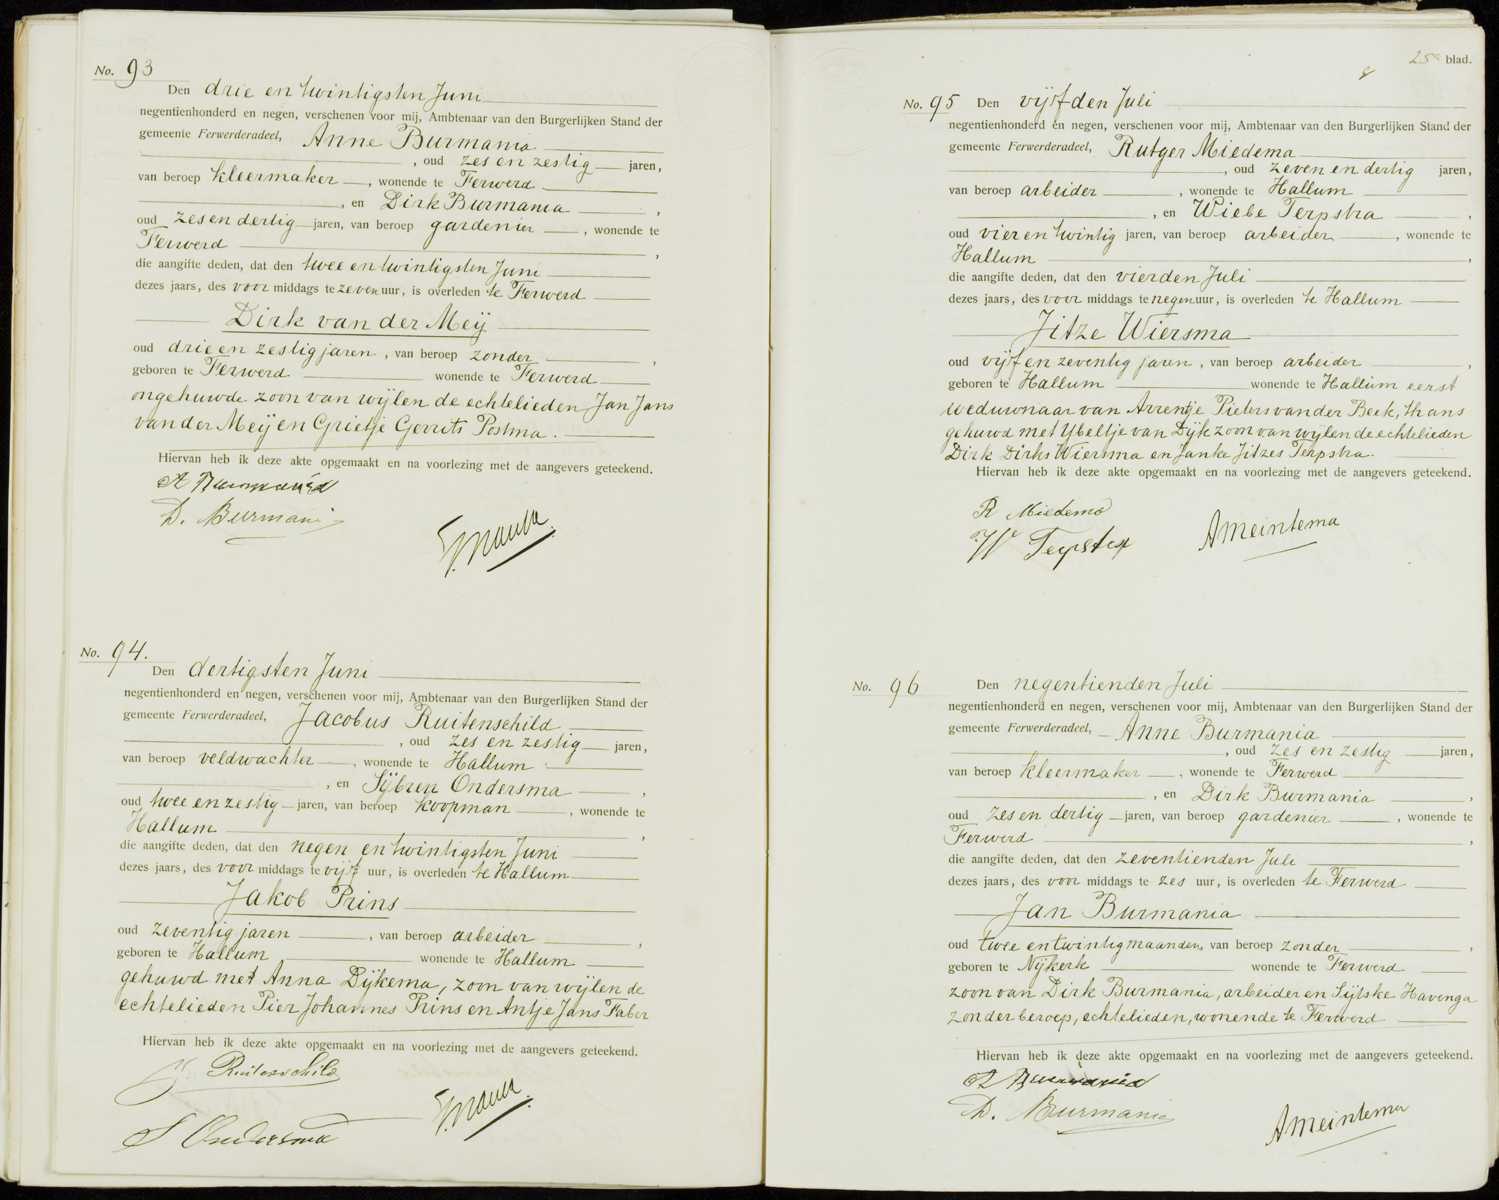 No. 93
Den drie en twintigsten Juni
negentienhonderd en negen, verschenen voor mij, Ambtenaar van den Burgerlijken Stand der
gemeente Ferwerderadeel, Anne Burmania
, oud zes en zestig jaren,
van beroep kleermaker, wonende te Ferwerd
, en Dirk Burmania,
oud zes en dertig jaren, van beroep gardenier, wonende te
Ferwerd,
die aangifte deden, dat den twee en twintigsten Juni
dezes jaars, des voor middags te zeven uur, is overleden te Ferwerd
Dirk van der Meij
oud drie en zestig jaren, van beroep zonder,
geboren te Ferwerd wonende te Ferwerd
ongehuwde zoon van wijlen de echtelieden Jan Jans
van der Meij en Grietje Gerrits Postma.
Hiervan heb ik deze akte opgemaakt en na voorlezing met de aangevers geteekend.
A Burmania
D. Burmania
No. 94.
Den dertigsten Juni
negentienhonderd en negen, verschenen voor mij, Ambtenaar van den Burgerlijken Stand der
gemeente Ferwerderadeel, Jacobus Ruitenschild
, oud zes en zestig jaren,
van beroep veldwachter, wonende te Hallum
, en Sijbren Ondersma,
oud twee en zestig jaren, van beroep koopman, wonende te
Hallum,
die aangifte deden, dat den negen en twintigsten Juni
dezes jaars, des voor middags te vijf uur, is overleden te Hallum
Jakob Prins
oud zeventig jaren, van beroep arbeider,
geboren te Hallum wonende te Hallum
gehuwd met Anna Dijkema, zoon van wijlen de
echtelieden Pier Johannes Prins en Antje Jans Faber
Hiervan heb ik deze akte opgemaakt en na voorlezing met de aangevers geteekend.
J. Ruitenschild
S Ondersma
25e blad.
No. 95 Den vijfden Juli
negentienhonderd en negen, verschenen voor mij, Ambtenaar van den Burgerlijken Stand der
gemeente Ferwerderadeel, Rutger Miedema
, oud zeven en dertig jaren,
van beroep arbeider, wonende te Hallum
, en Wiebe Terpstra,
oud vier en twintig jaren, van beroep arbeider, wonende te
Hallum,
die aangifte deden, dat den vierden Juli
dezes jaars, des voor middags te negen uur, is overleden te Hallum
Jitze Wiersma
oud vijf en zeventig jaren, van beroep arbeider,
geboren te Hallum wonende te Hallum eerst
weduwnaar van Arrentje Pieters van der Beek, thans
gehuwd met IJbeltje van Dijk zoon van wijlen de echtelieden
Dirk Dirks Wiersma en Janke Jitzes Terpstra.
Hiervan heb ik deze akte opgemaakt en na voorlezing met de aangevers geteekend.
R Miedema
W Terpstra
AMeintema
No. 96 Den negentienden Juli
negentienhonderd en negen, verschenen voor mij, Ambtenaar van den Burgerlijken Stand der
gemeente Ferwerderadeel, Anne Burmania
, oud zes en zestig jaren,
van beroep kleermaker, wonende te Ferwerd
, en Dirk Burmania,
oud zes en dertig jaren, van beroep gardenier, wonende te
Ferwerd,
die aangifte deden, dat den zeventienden Juli
dezes jaars, des voor middags te zes uur, is overleden te Ferwerd
Jan Burmania
oud twee en twintig maanden, van beroep zonder,
geboren te Nijkerk wonende te Ferwerd
zoon van Dirk Burmania, arbeider en Sijtske Havenga
zonder beroep, echtelieden, wonende te Ferwerd
Hiervan heb ik deze akte opgemaakt en na voorlezing met de aangevers geteekend.
A Burmania
D. Burmania
AMeintema